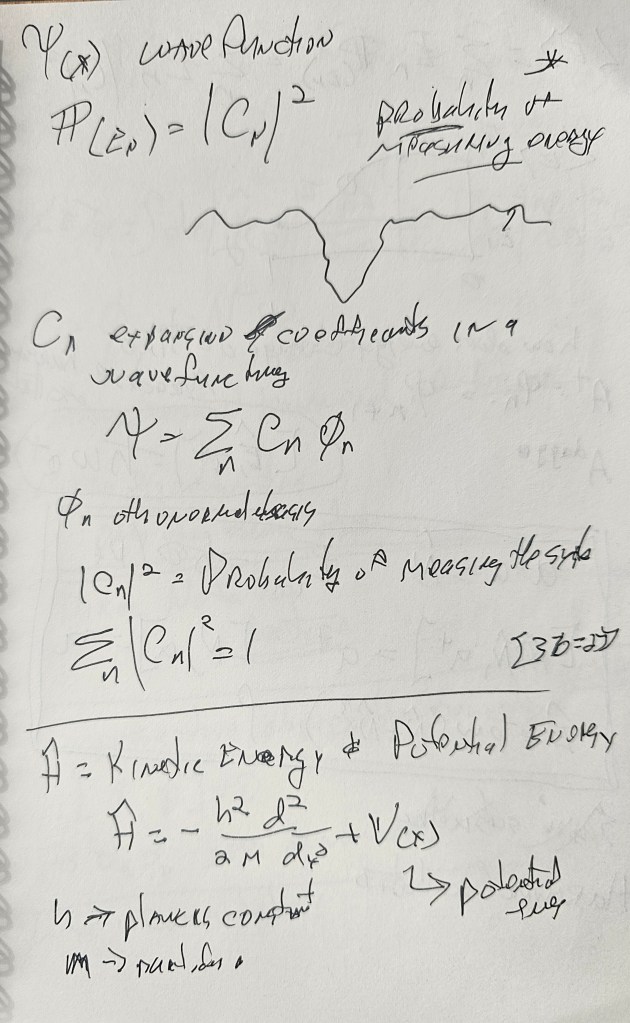 Ψ(x) wave function
P(En) = |Cn|² probability of
measuring energy
Cn expansion coefficients in a
wavefunctions
Ψ = Σn Cn φn
φn othonormal basis
|Cn|² = Probability of measuring the
Σn |Cn|² = 1
Ĥ = Kinetic Energy & Potential Energy
Ĥ = - h² d² / 2m dx² + V(x)
↳ potential
h → plancks constant
m →